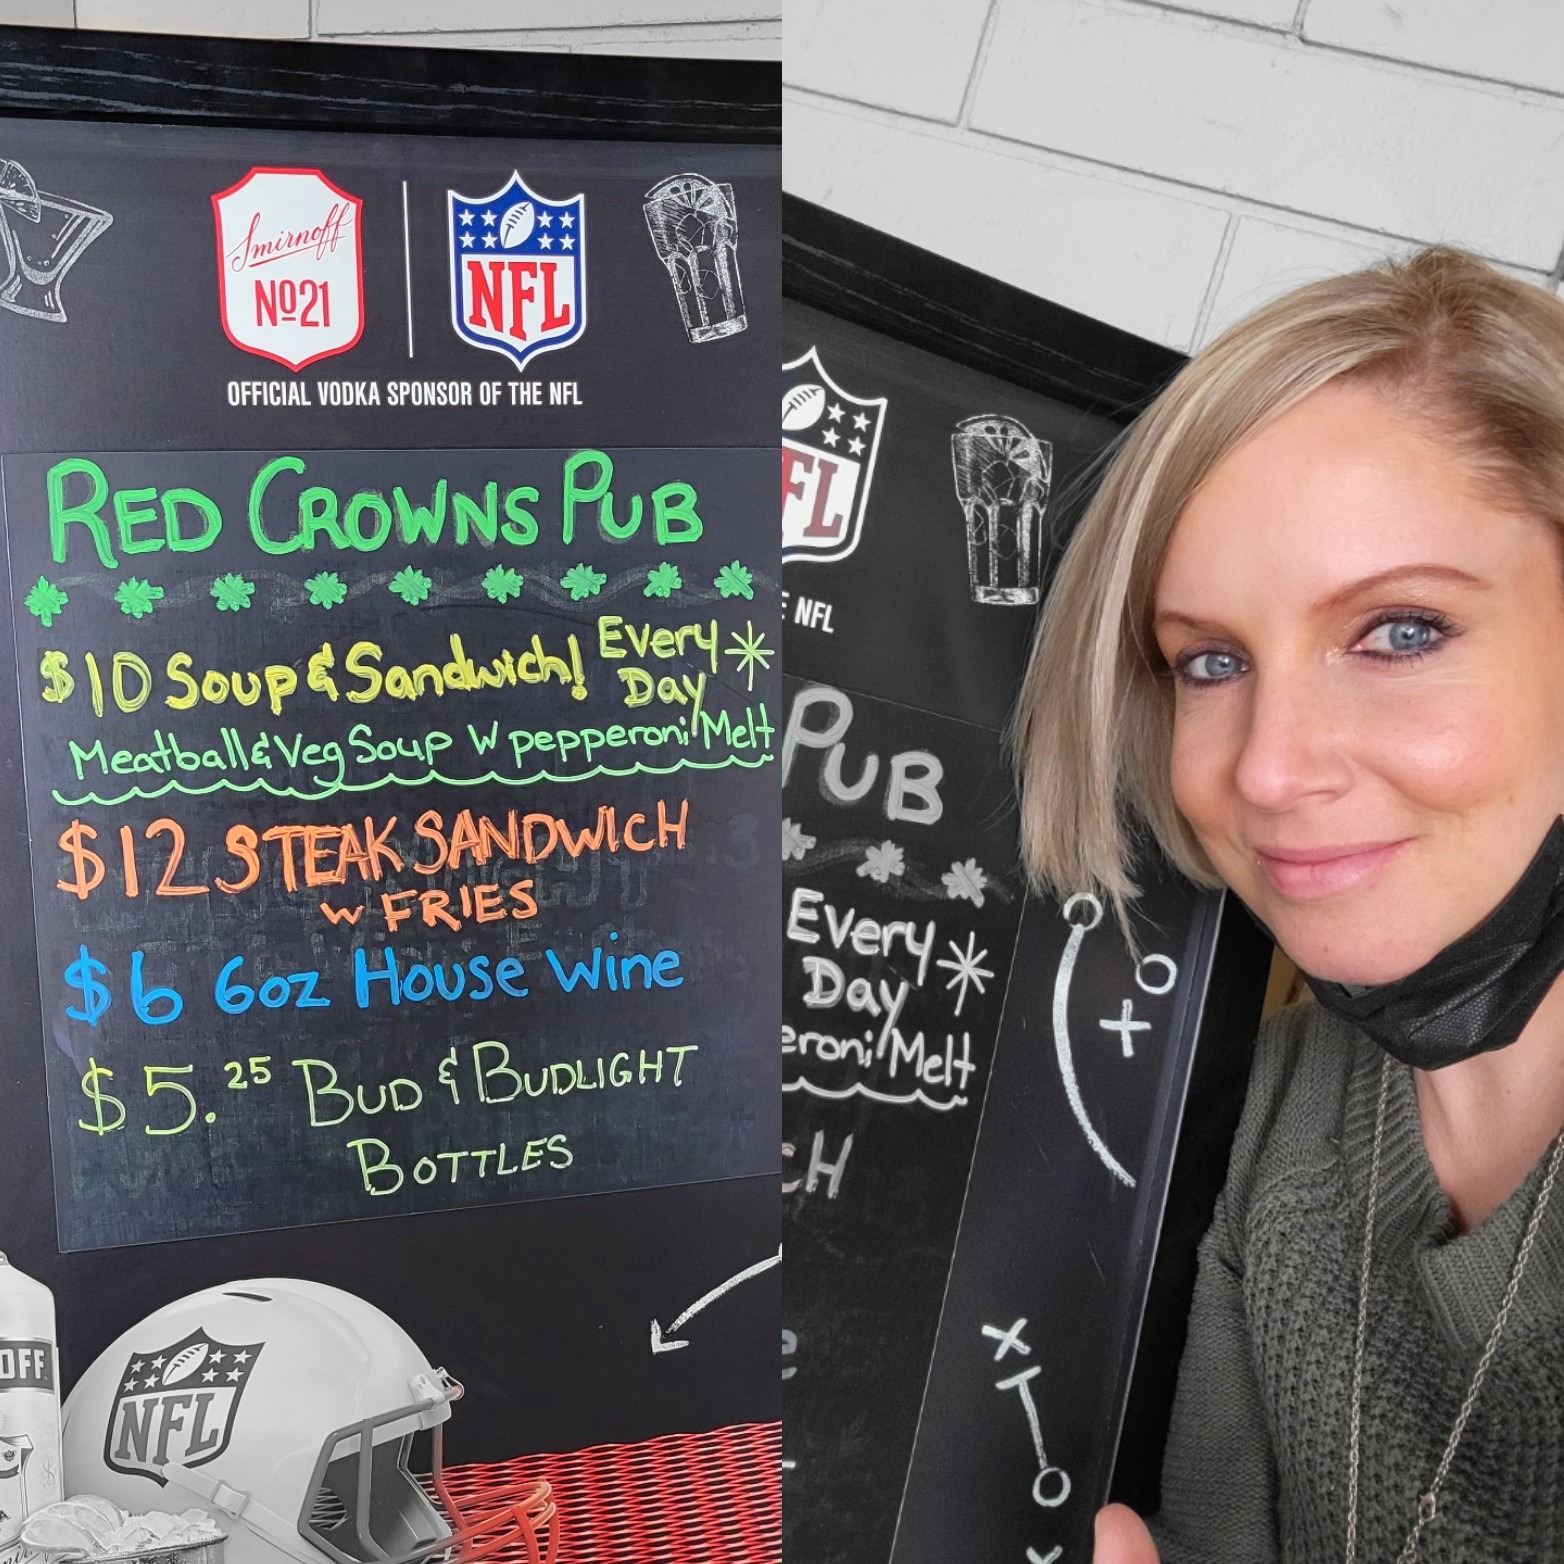 Smirnoff
No21
NFL
OFFICIAL VODKA SPONSOR OF THE NFL
RED CROWNS PUB
$10 Soup & Sandwich! Every Day
Meatball & Veg Soup w pepperoni Melt
$12 STEAK SANDWICH
w FRIES
$6 6oz House Wine
$5.25 BUD & BUDLIGHT
BOTTLES
OFF
NFL
FL
NFL
PUB
Every
Day
eroni Melt
CH